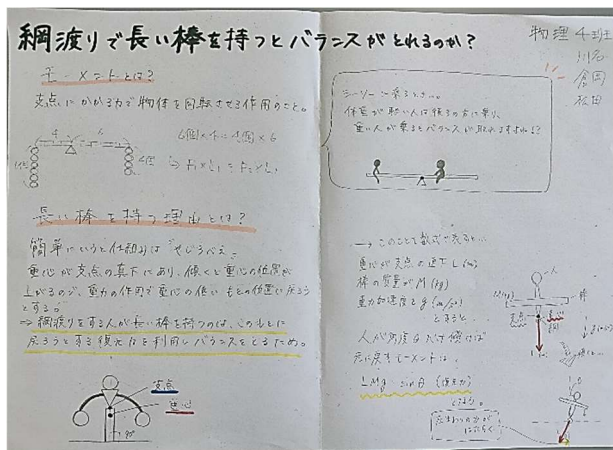 綱渡りで長い棒を持つとバランスがとれるのか?
物理 4班
川名
倉岡
松田
モーメントとは?
支点にかかる力で物体を回転させる作用のこと。
6個×4=4個×6
長い棒を持つ理由とは?
簡単にいうと仕組みは"やじろべえ"
重心が支点の真下にあり、傾くと重心の位置が
上がるので、重力の作用で重心の低いもとの位置に戻ろう
とする。
⇒綱渡りをする人が長い棒を持つのは、このもとに
戻ろうとする復元力を利用しバランスをとるため。
支点
重心
90°
シーソーに乗るとき…
体重が軽い人は後ろの方に乗り、
重い人が乗るとバランスが取れますよね!?
→このことを数式で表すと…
重心が支点の真下 L(m)
棒の質量が M(kg)
重力加速度を g(m/s²)
とすると
人が角度θだけ傾けば
元に戻すモーメントは、
LMg sinθ (復元力)
となり。
人
棒
支点
重心